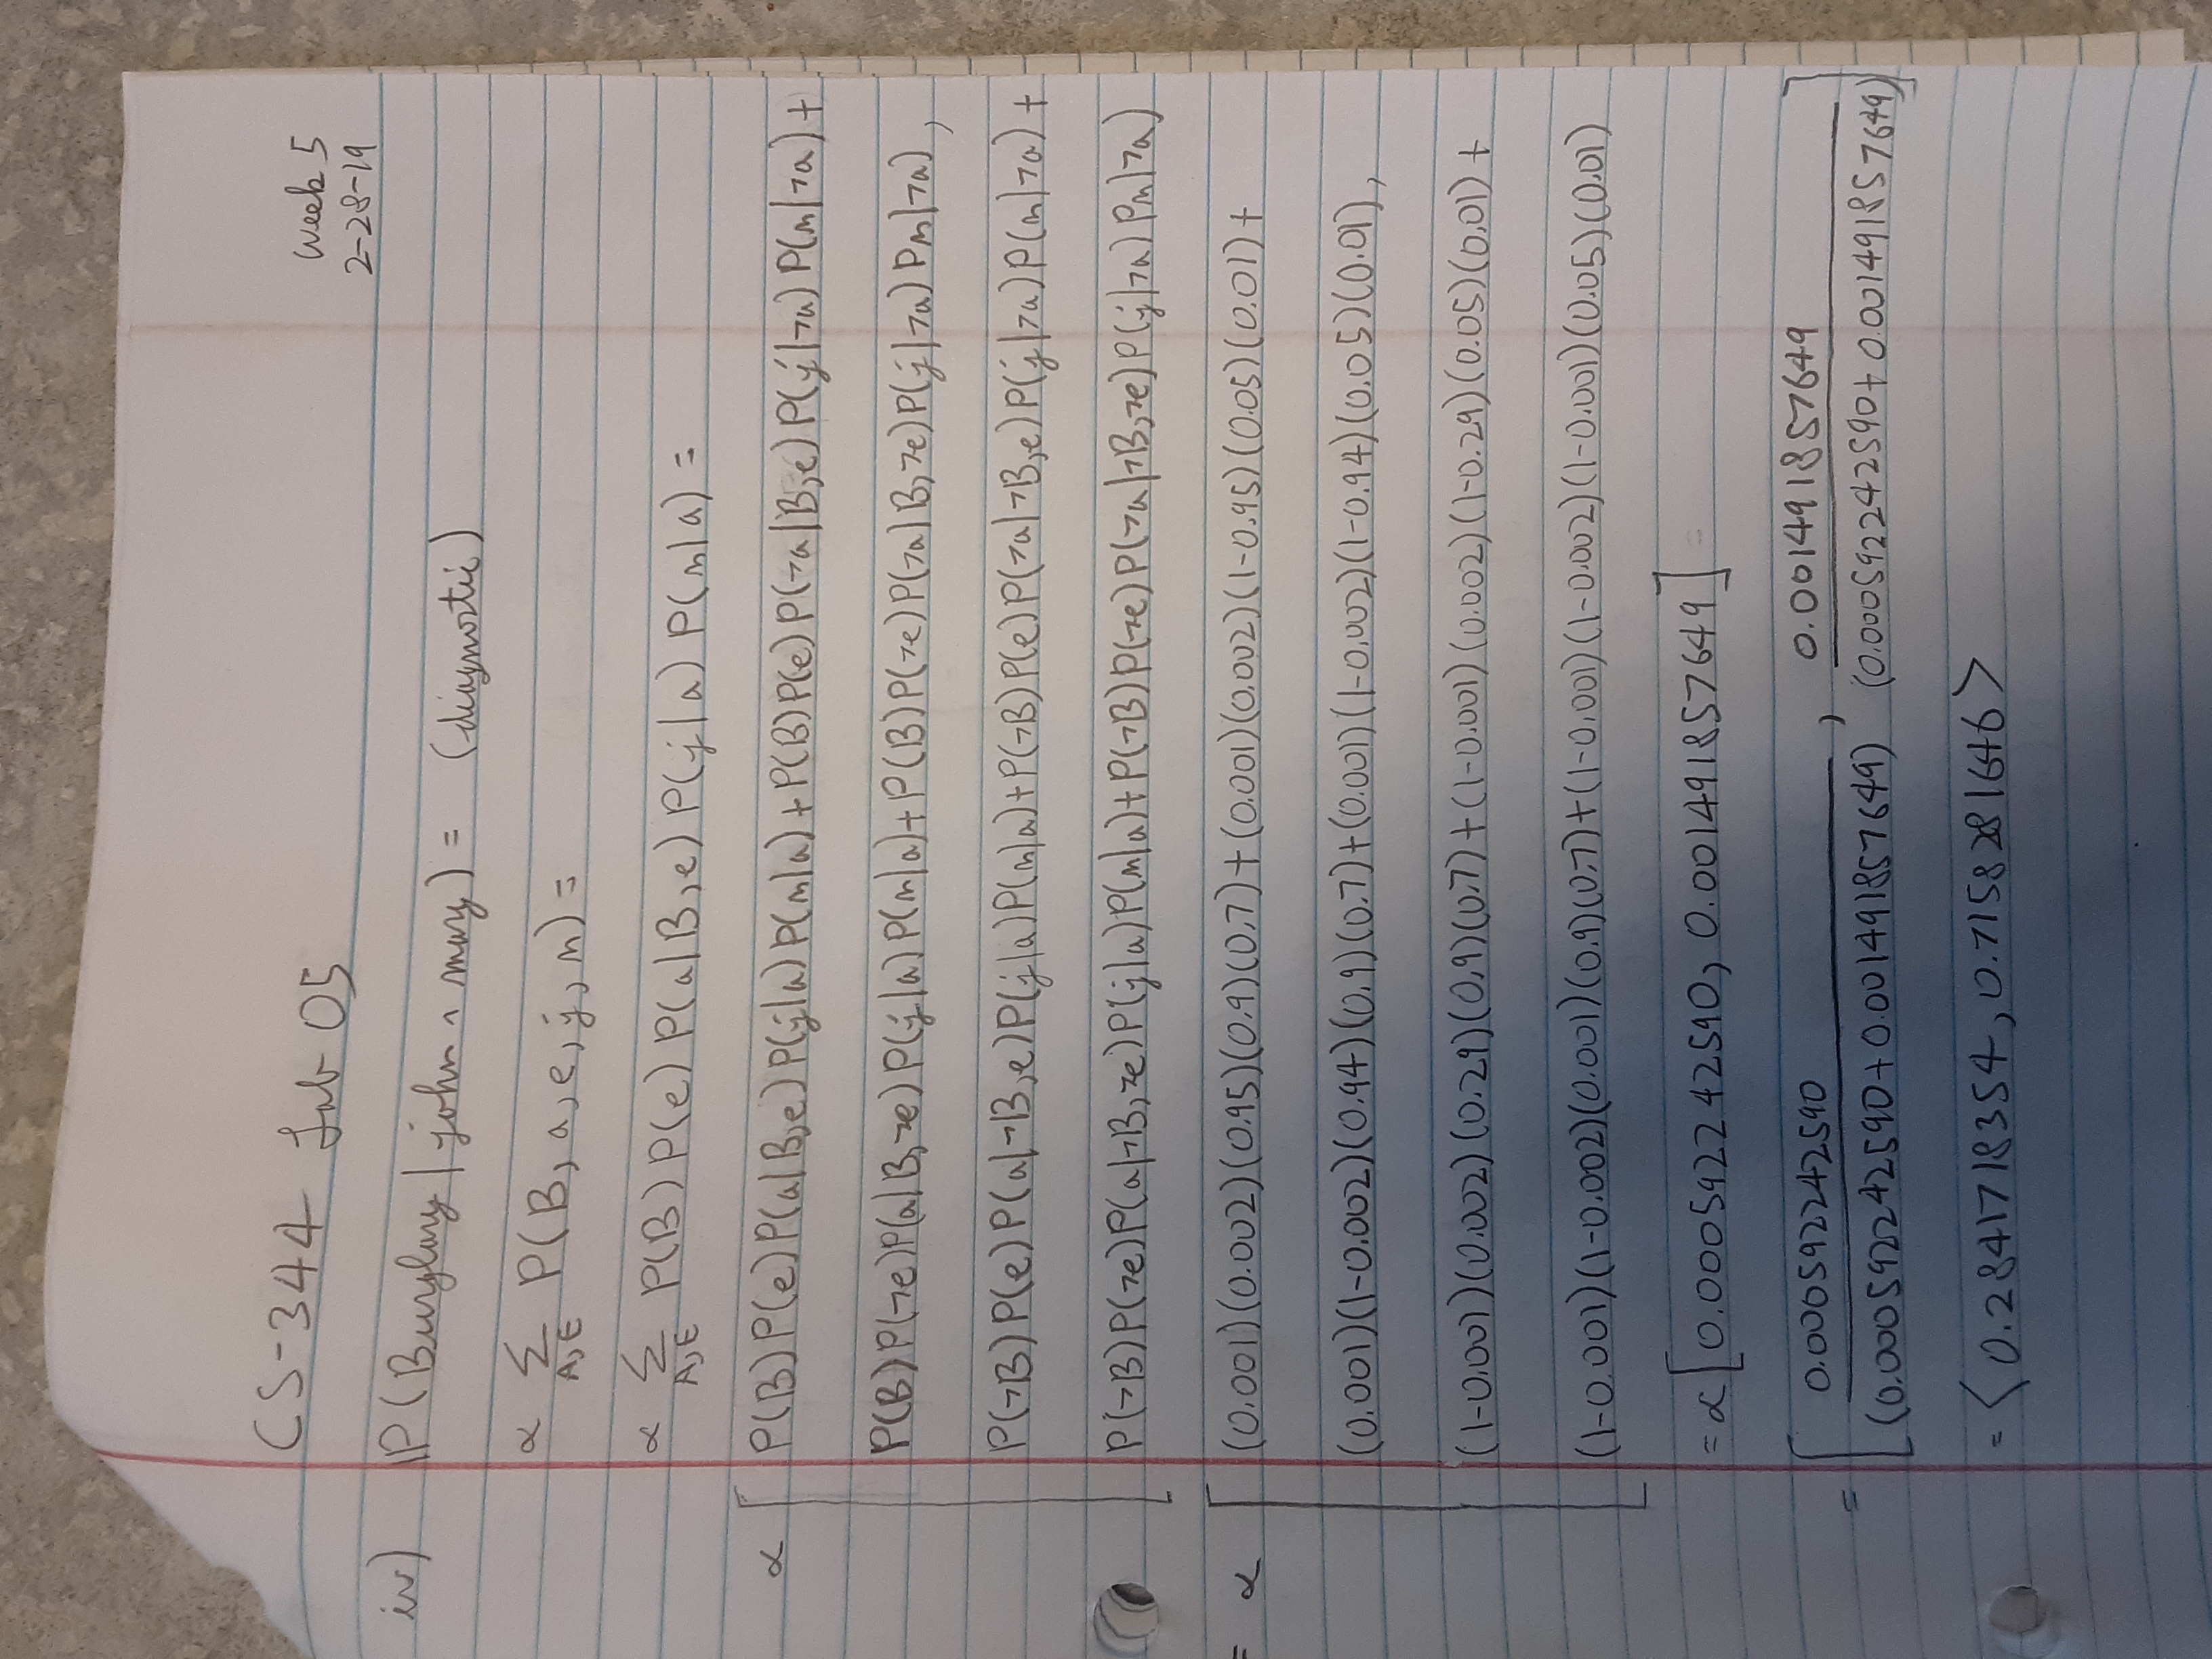 CS-344 Lab 05
Week 5
2-28-19
iv) P(Burglary | john ∧ mary) = (diagnostic)
∝ Σ P(B, a, e, j, m) =
A, E
∝ Σ P(B) P(e) P(a|B,e) P(j|a) P(m|a) =
A, E
∝ [ P(B)P(e)P(a|B,e)P(j|a)P(m|a)+P(B)P(e)P(¬a|B,e)P(j|¬a)P(m|¬a)+
P(B)P(¬e)P(a|B,¬e)P(j|a)P(m|a)+P(B)P(¬e)P(¬a|B,¬e)P(j|¬a)Pm|¬a),
P(¬B)P(e)P(a|¬B,e)P(j|a)P(m|a)+P(¬B)P(e)P(¬a|¬B,e)P(j|¬a)P(m|¬a)+
P(¬B)P(¬e)P(a|¬B,¬e)P(j|a)P(m|a)+P(¬B)P(¬e)P(¬a|¬B,¬e)P(j|¬a)Pm|¬a)
= ∝ [ (0.001)(0.002)(0.95)(0.9)(0.7)+(0.001)(0.002)(1-0.95)(0.05)(0.01)+
(0.001)(1-0.002)(0.94)(0.9)(0.7)+(0.001)(1-0.002)(1-0.94)(0.05)(0.01),
(1-0.001)(0.002)(0.29)(0.9)(0.7)+(1-0.001)(0.002)(1-0.29)(0.05)(0.01)+
(1-0.001)(1-0.002)(0.001)(0.9)(0.7)+(1-0.001)(1-0.002)(1-0.001)(0.05)(0.01)
= ∝ [0.000592242590, 0.001491857649] =
= [ 0.000592242590 , 0.001491857649 ]
(0.000592242590+0.001491857649) (0.000592242590+0.001491857649)
= ⟨0.2841718354, 0.7158281646⟩